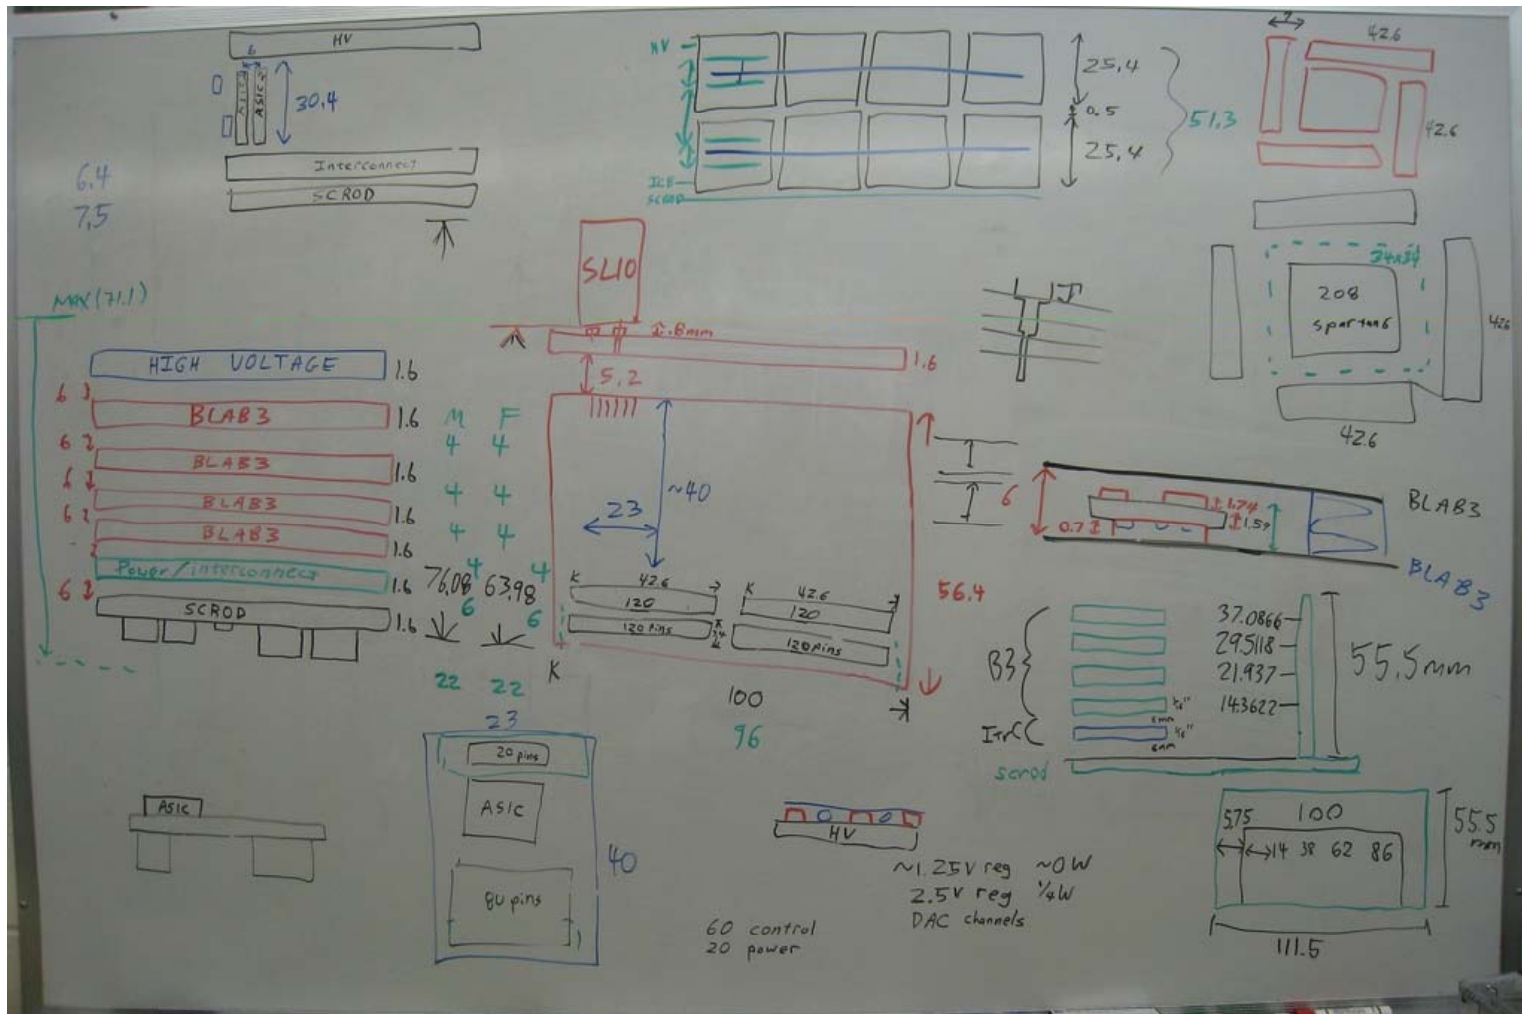 HV
6
ASIC
30.4
Interconnect
SCROD
6.4
7.5
HV
25.4
0.5
25.4
51.3
SCROD
7
42.6
42.6
34x34
208
Spartan6
42.6
42.6
MAX(71.1)
HIGH VOLTAGE
1.6
6
BLAB3
1.6
6
BLAB3
1.6
6
BLAB3
1.6
6
BLAB3
1.6
Power/interconnect
1.6
6
SCROD
1.6
M F
4 4
4 4
4 4
4 4
76.08 63.98
6 6
22 22
SL10
.8mm
1.6
5.2
~40
23
K 42.6
120
120 pins
K 42.6
120
120 pins
56.4
K
100
96
6
1.74
1.57
0.7
BLAB3
BLAB3
B3
ItrC
scrod
37.0866
29.5118
21.937
14.3622
1/16"
6mm
1/16"
6mm
55.5mm
ASIC
23
20 pins
ASIC
80 pins
40
HV
~1.25V reg ~0W
2.5V reg ¼W
DAC channels
60 control
20 power
5.75
100
14 38 62 86
55.5
mm
111.5